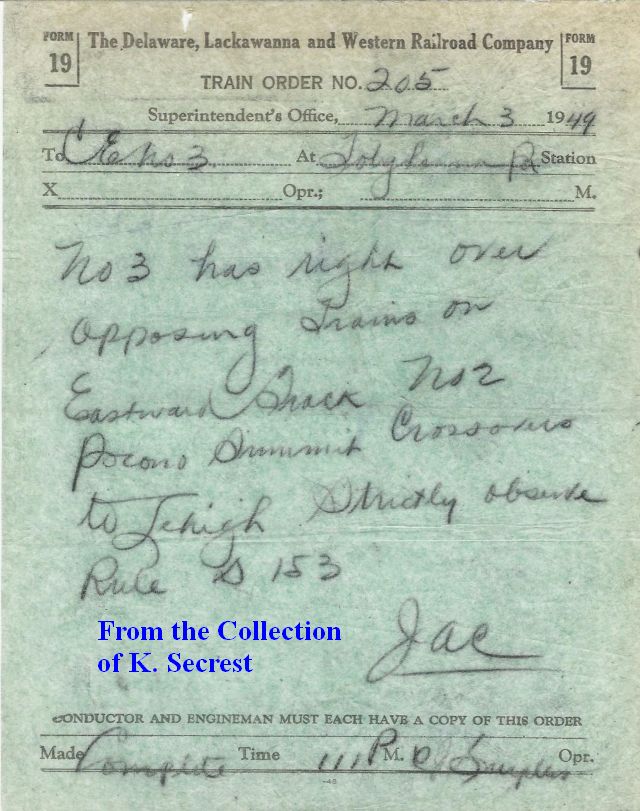 FORM 19 The Delaware, Lackawanna and Western Railroad Company FORM 19
TRAIN ORDER NO. 205
Superintendent's Office, March 3 1949
To C&E No 3 At Tobyhanna Pa Station
X Opr.; M.
No 3 has right over
opposing trains on
Eastward Track No 2
Pocono Summit Crossovers
to Lehigh Strictly observe
Rule S 153
From the Collection
of K. Secrest
JAC
CONDUCTOR AND ENGINEMAN MUST EACH HAVE A COPY OF THIS ORDER
Made Complete Time 111 P M. Opr.
-48